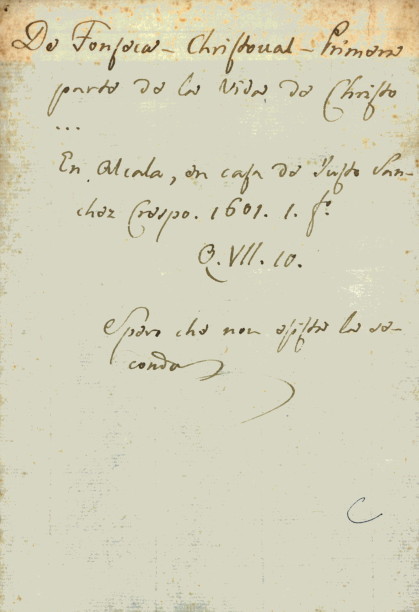 De Fonseca - Christoual - Primera
parte de la Vida de Christo
...
En Alcala, en casa de Iusto San-
chez Crespo. 1601. 1. fo.
Q. VII. 10.
Spero che non esiste la se-
conda
C